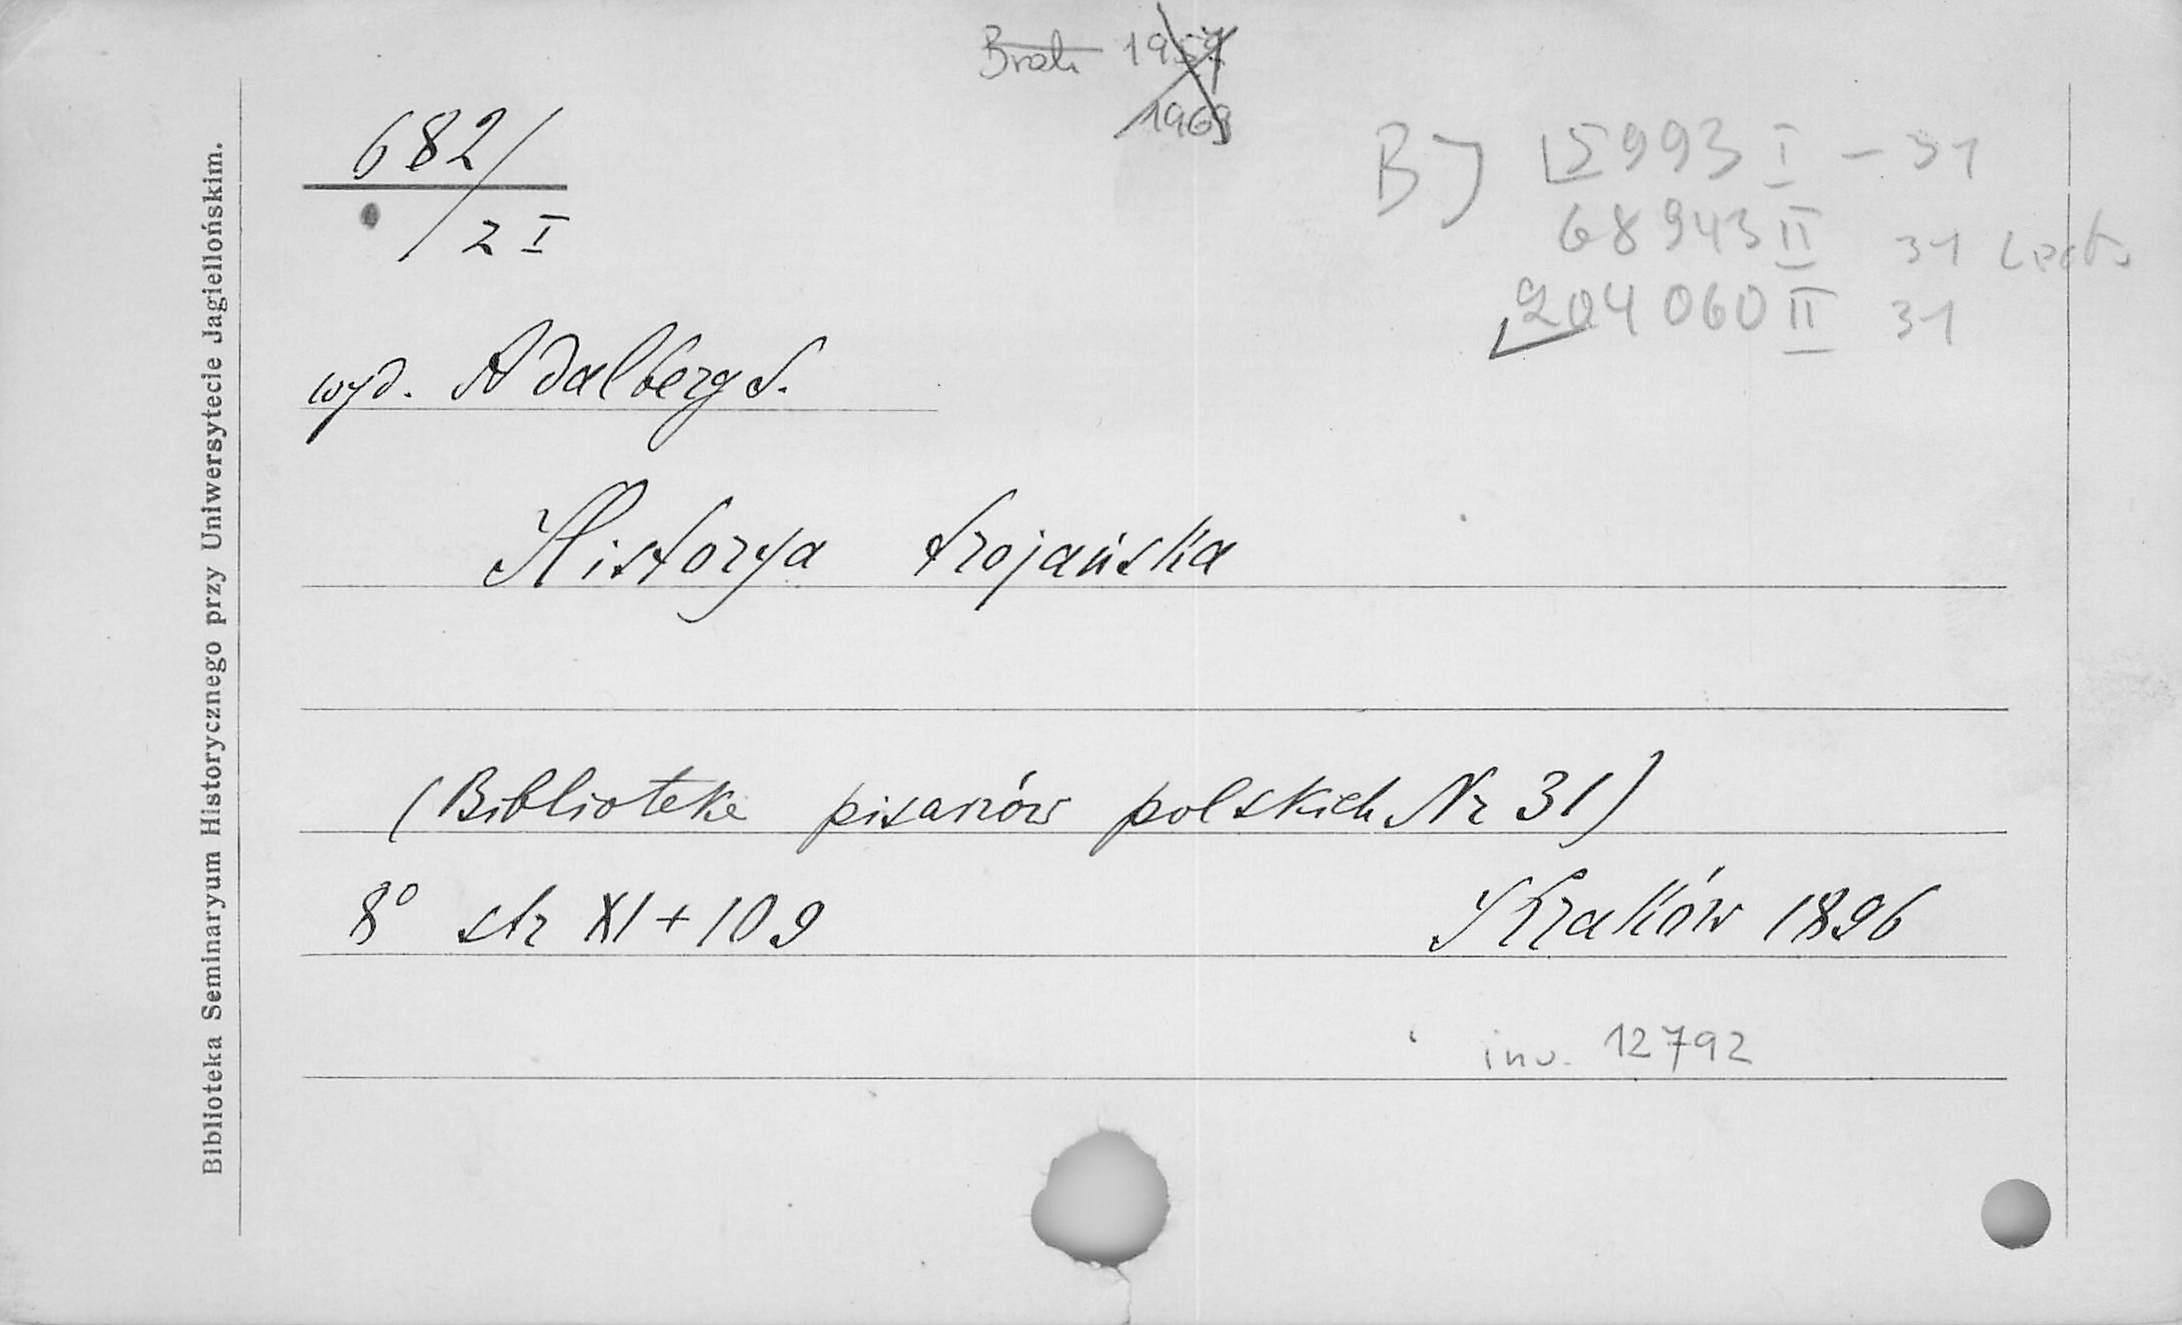 Brak 1957
1969
682/
2 I
BJ 5993 I - 31
68943 II 31
204060 II 31
wyd. Adalberg S.
Historya trojańska
(Biblioteka pisarzów polskich Nr 31)
8° str XI + 109 Kraków 1896
inv. 12792
Biblioteka Seminaryum Historycznego przy Uniwersytecie Jagiellońskim.